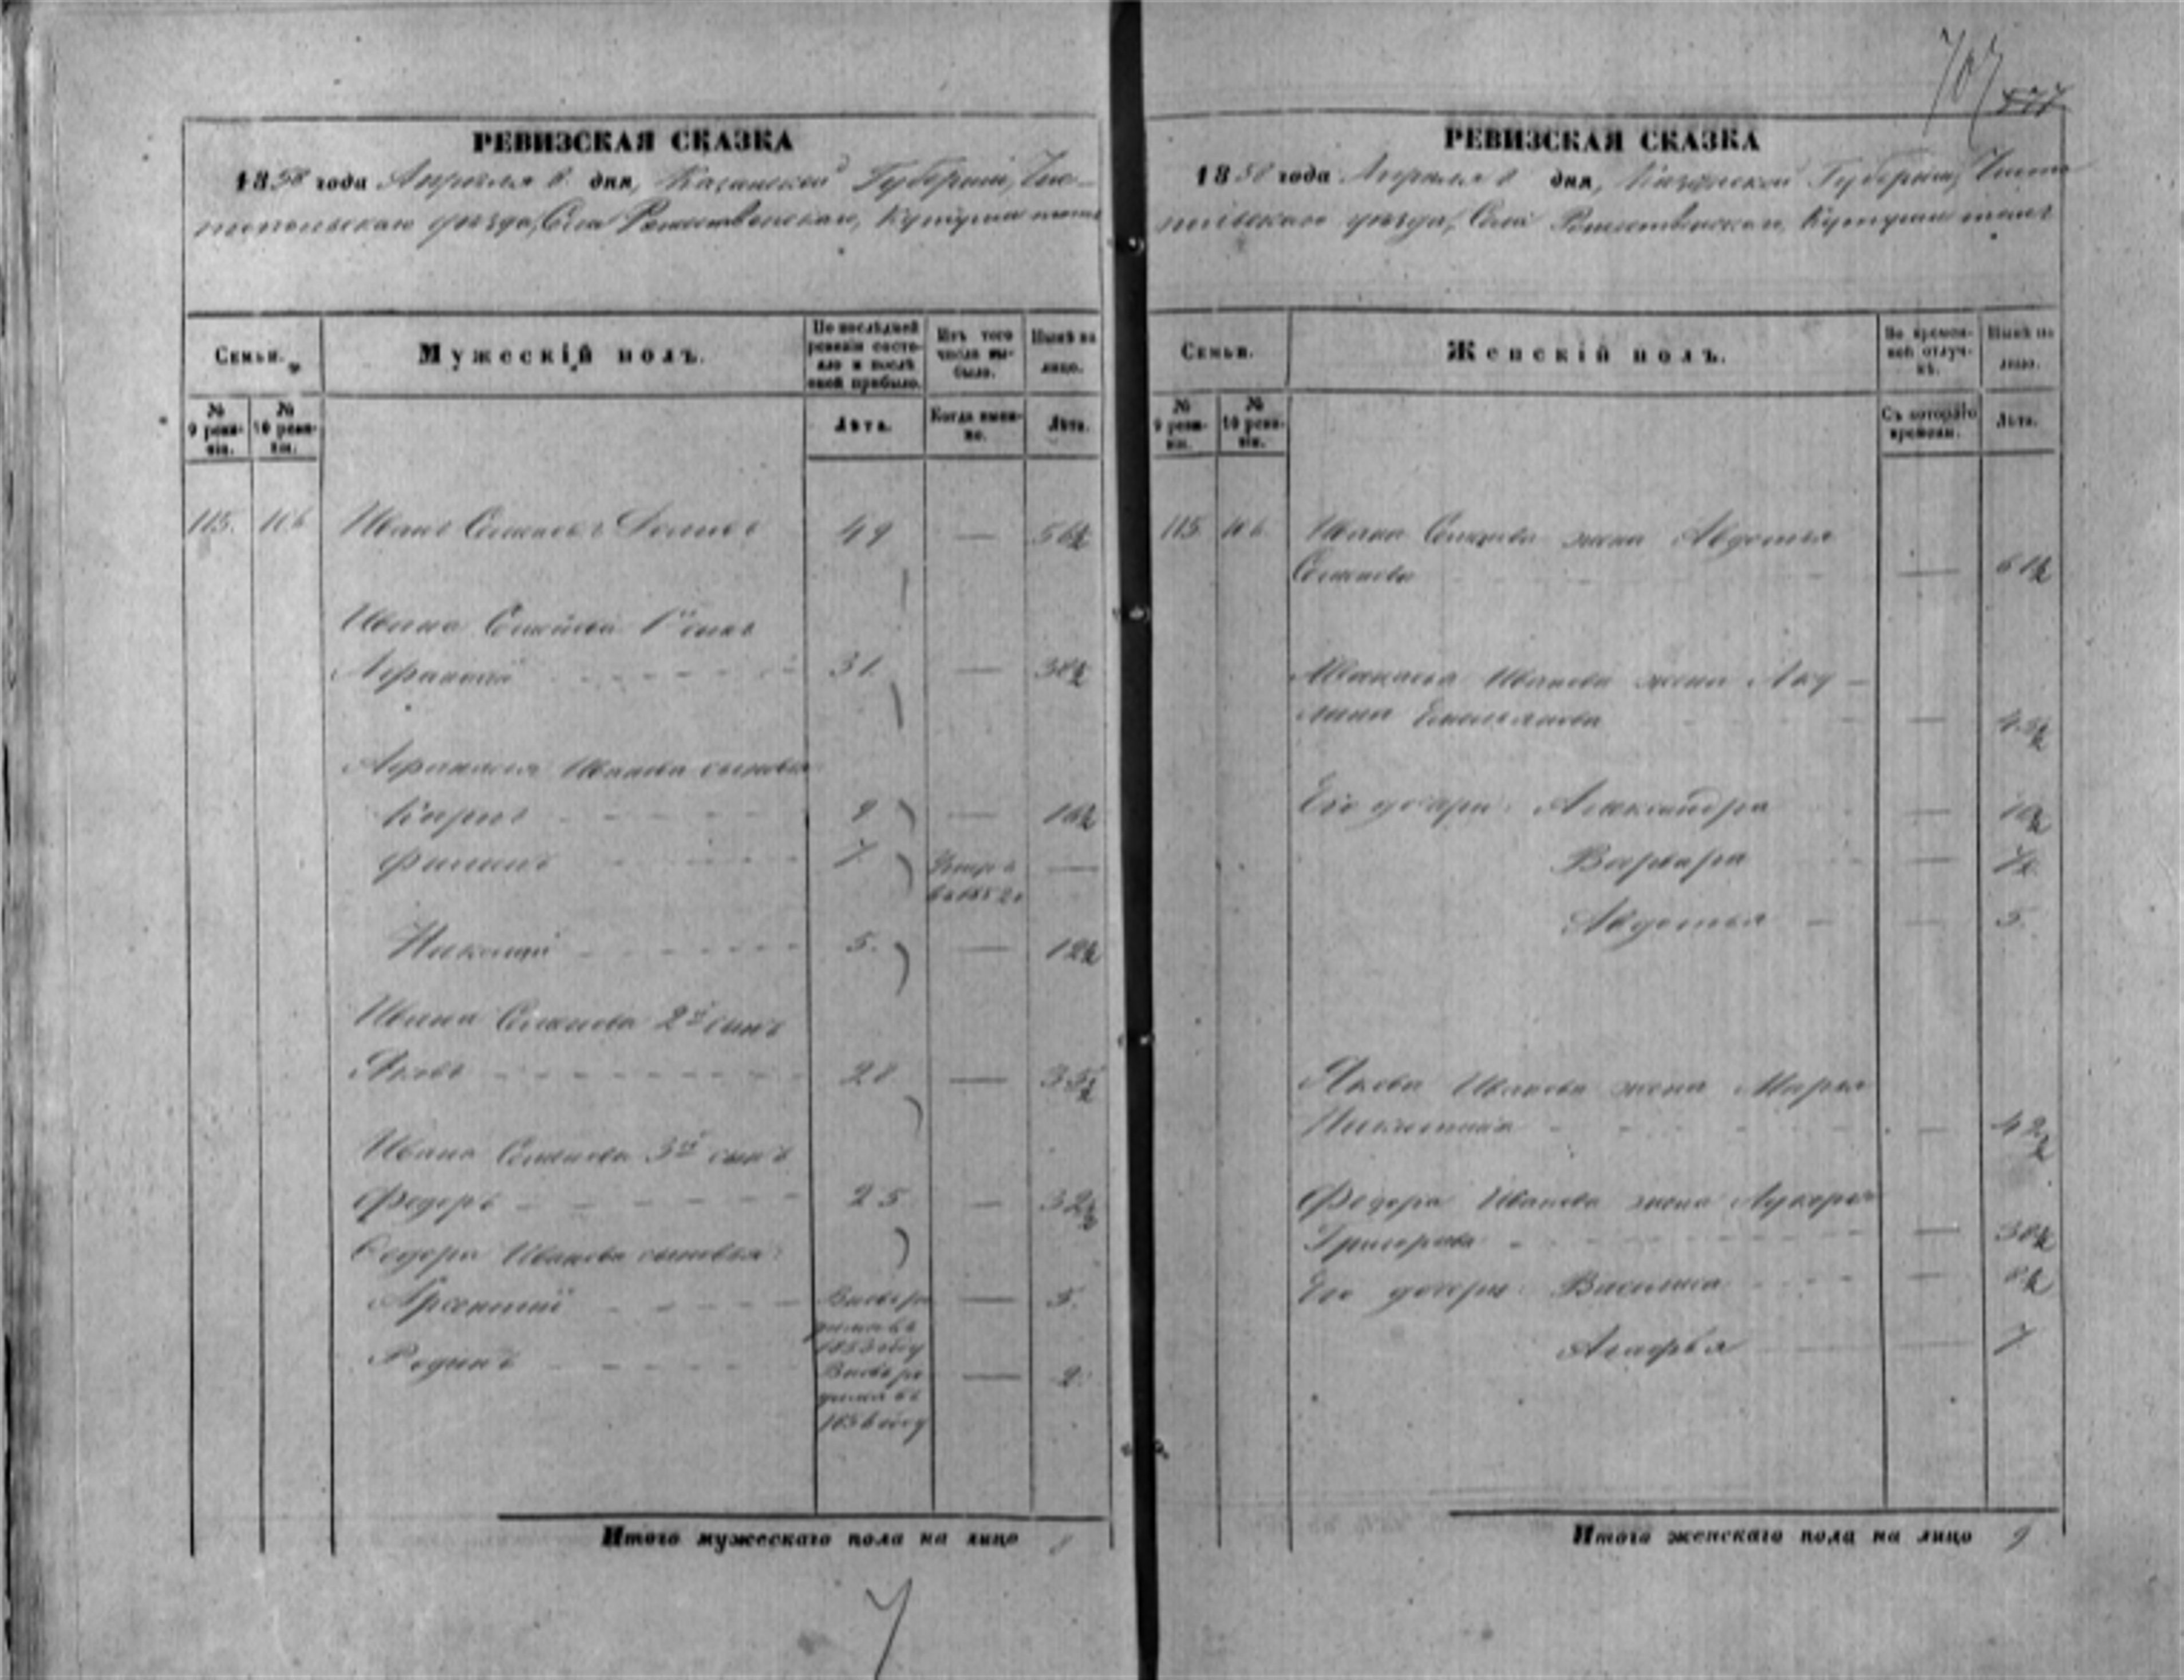 707
577
РЕВИЗСКАЯ СКАЗКА
1858 года Апреля 8 дня, Казанской Губерніи, Чис-
топольскаго уезда, Села Рожественскаго, Кутушъ тожъ
Семьи.
Мужескій полъ.
По послѣдней ревизіи состояло и послѣ оной прибыло.
Изъ того числа выбыло.
Нынѣ на лицо.
№ 9 ревизіи.
№ 10 ревизіи.
Лѣта.
Когда именно.
Лѣта.
115. 106 Иванъ Семеновъ 49 — 56½
Ивана Семенова 1й сынъ
Афанасій 31. — 38½
Афанасія Иванова сыновья
Карпъ 9 — 16½
Филипъ 7 Умеръ въ 1852 —
Николай 5. — 12½
Ивана Семенова 2й сынъ
Яковъ 28 — 35½
Ивана Семенова 3й сынъ
Федоръ 25 — 32½
Федора Иванова сыновья:
Арсентий Вновь родился въ 1853 году — 5.
Родинъ Вновь родился въ 1856 году — 2.
Итого мужескаго пола на лицо 8
РЕВИЗСКАЯ СКАЗКА
1858 года Апреля 8 дня, Казанской Губерніи, Чисто-
польскаго уезда, Села Рожественскаго, Кутушъ тожъ
Семьи.
Женскій полъ.
Во временной отлучкѣ.
Нынѣ на лицо.
№ 9 ревизіи.
№ 10 ревизіи.
Съ котораго времени.
Лѣта.
115. 106. Ивана Семенова жена Авдотья
Семенова — 61½
Афанасья Иванова жена Аку-
лина Емельянова — 45½
Его дочери: Александра — 10½
Варвара — 7½
Авдотья — 5.
Якова Иванова жена Марья
Никитина — 42½
Федора Иванова жена Лукерья
Григорьева — 30½
Его дочери: Василиса — 8½
Агафья 7
Итого женскаго пола на лицо 9